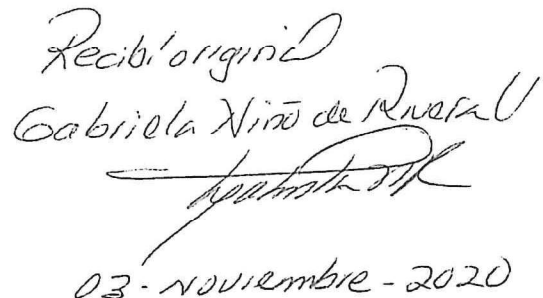 Recibí original
Gabriela Niño de Rivera U
03-Noviembre-2020